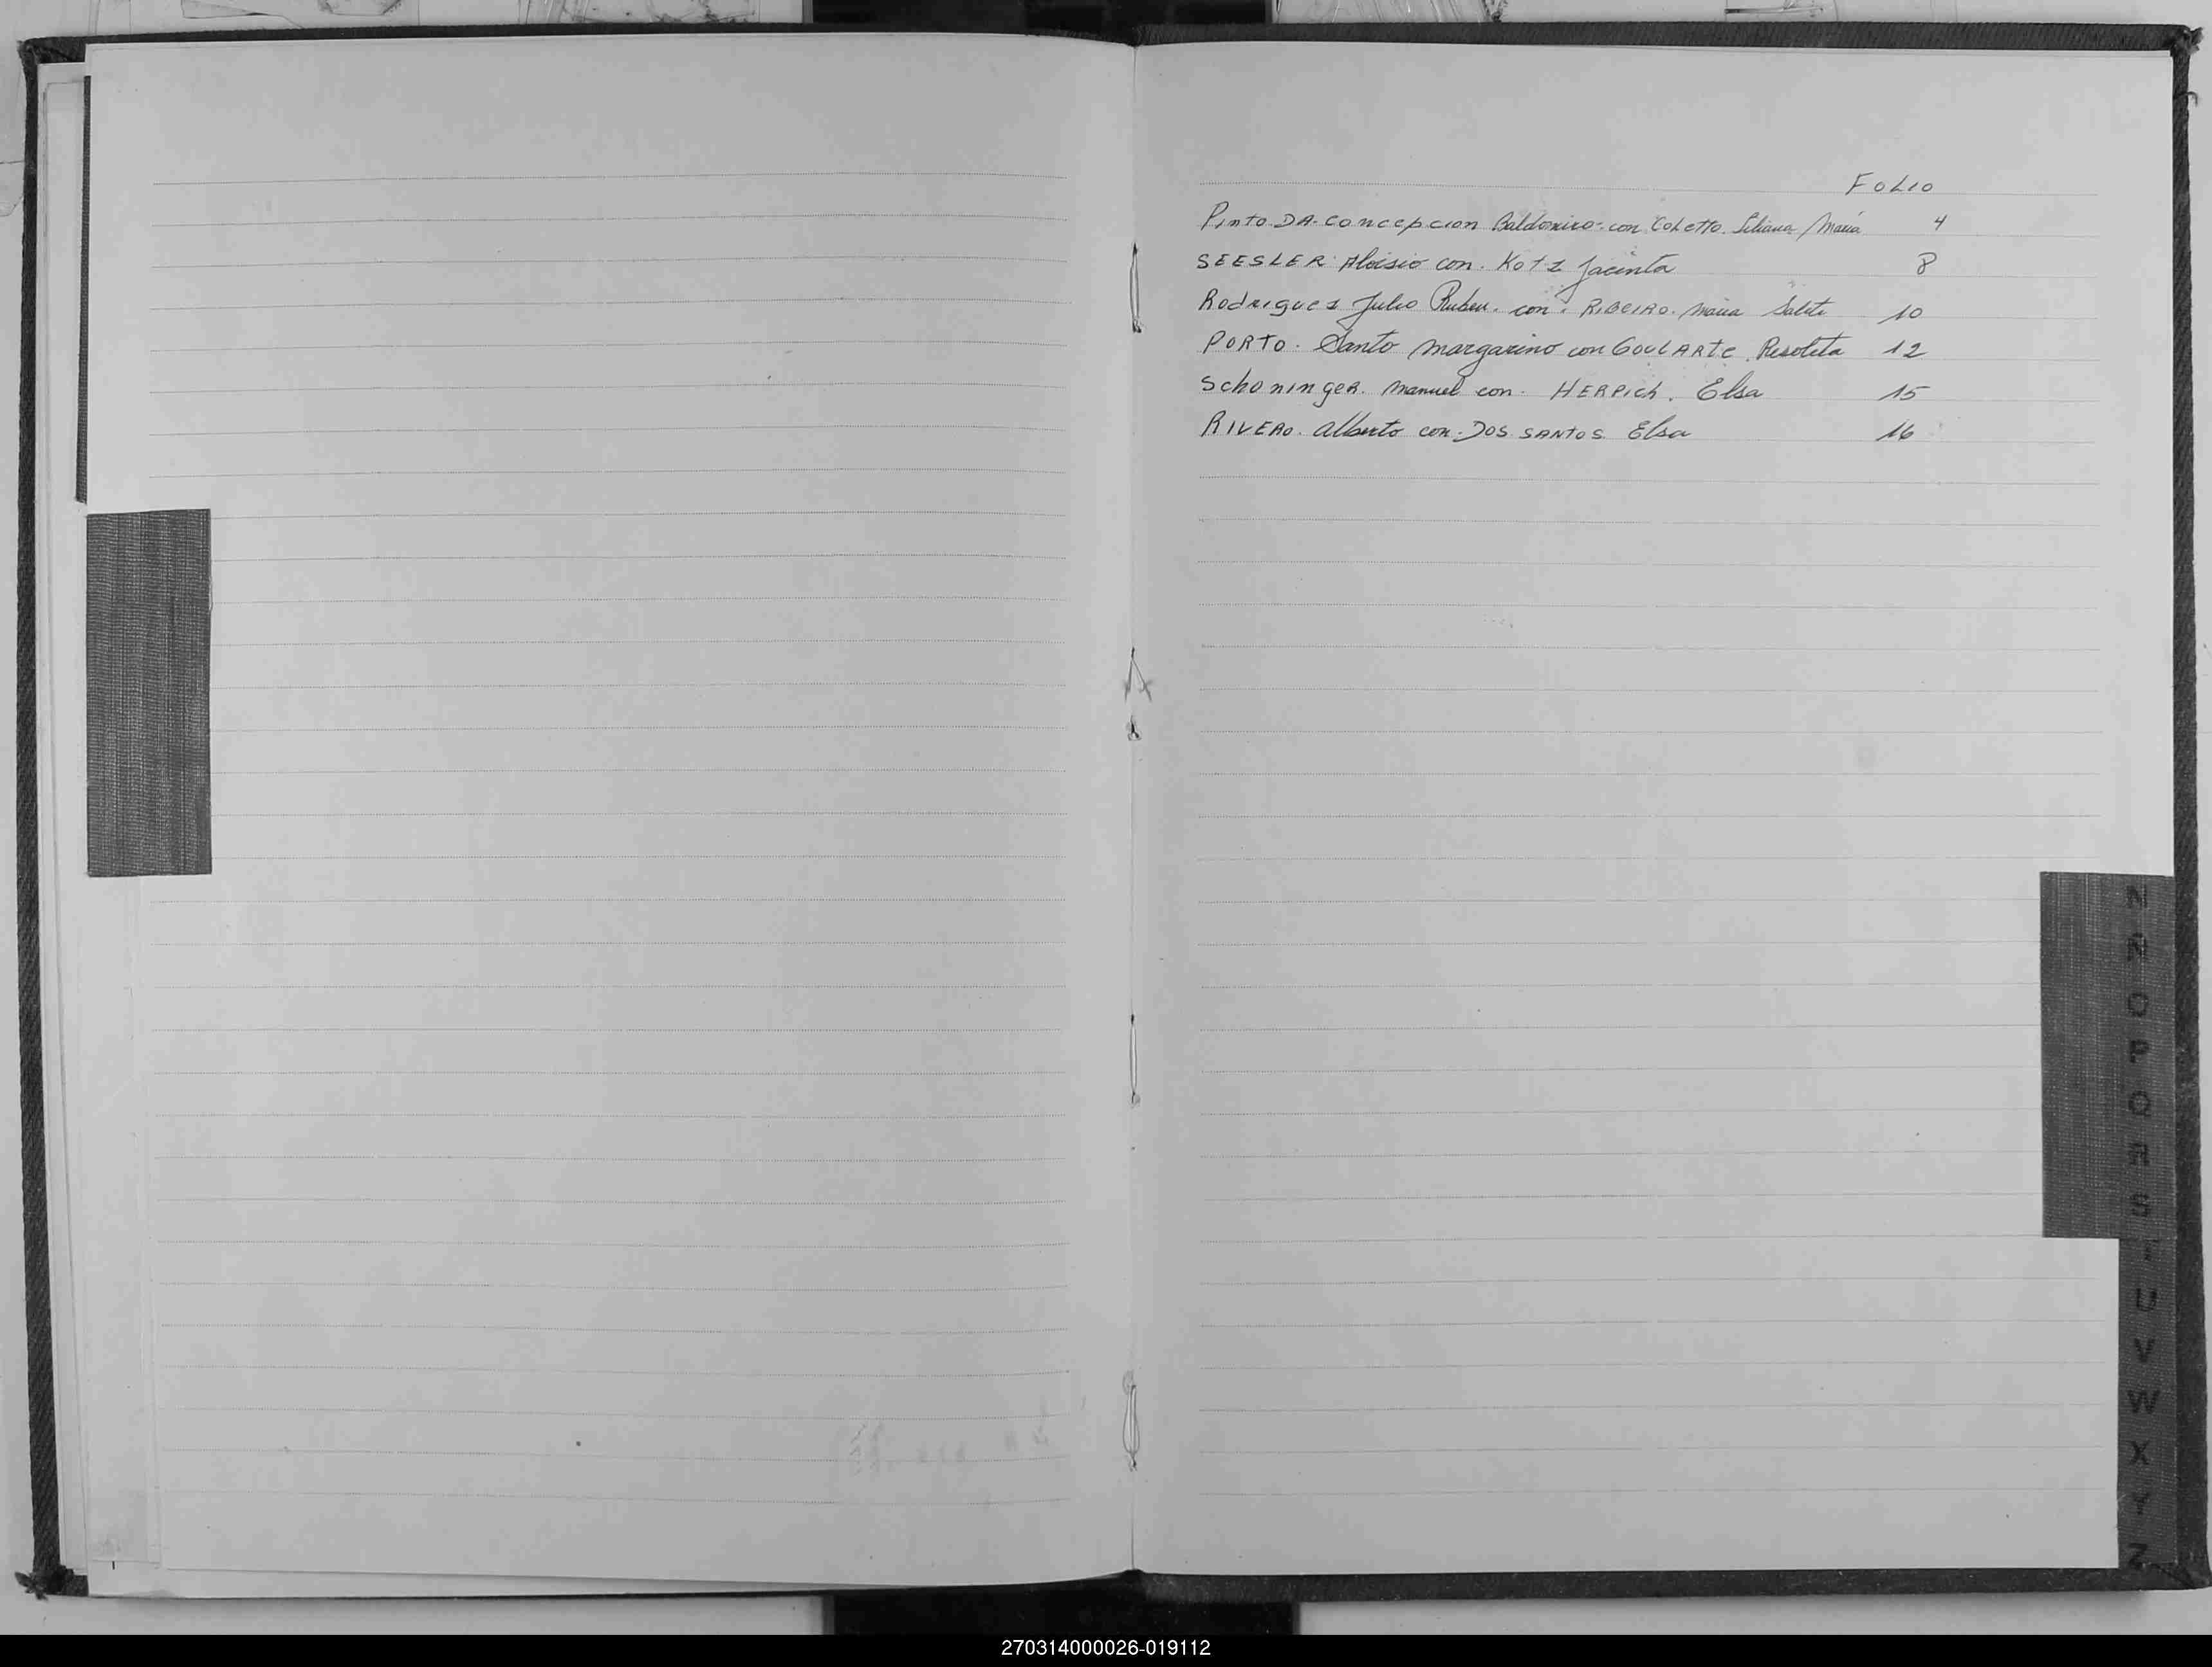 FOLIO
Pinto. DA. concepcion Baldomiro: con. Coletto. Liliana María 4
SEESLER Aloisio con. Kotz Jacinta 8
Rodrigues Julio Ruben. con. RIBEIRO. Maria Salete 10
PORTO. Santo Margarino con GOULARTE. 12
Schoninger. Manuel con. HERPICH. Elsa 15
RIVERO. Alberto con. DOS SANTOS. Elsa 16
N
Ñ
O
P
Q
R
S
T
U
V
W
X
Y
Z
270314000026-019112